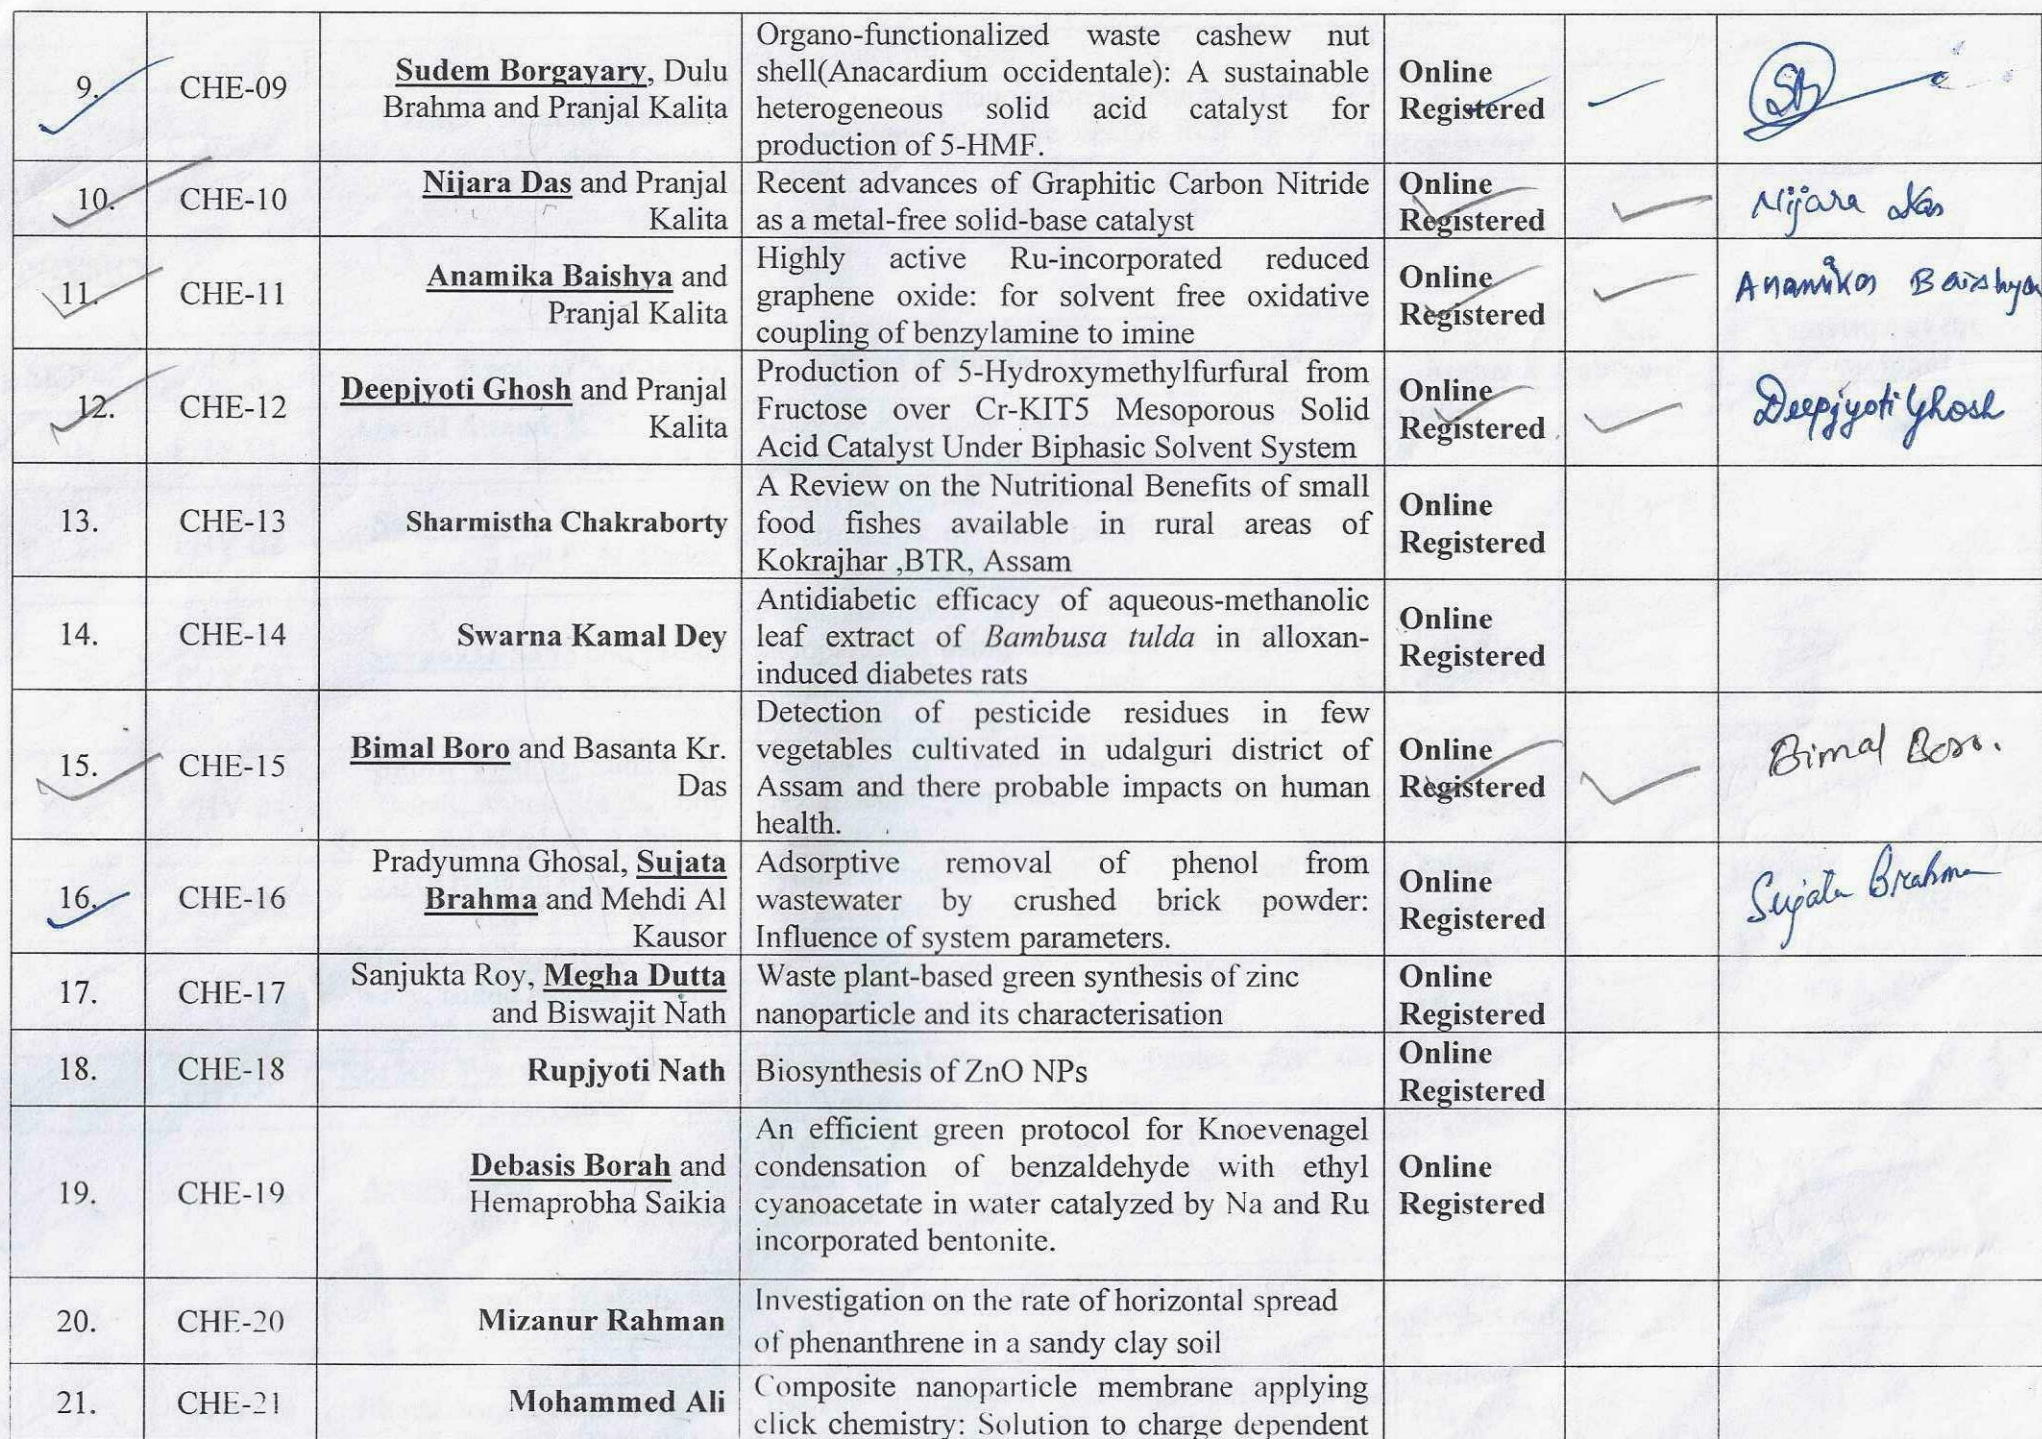 9. CHE-09 Sudem Borgayary, Dulu
Brahma and Pranjal Kalita
Organo-functionalized waste cashew nut
shell(Anacardium occidentale): A sustainable
heterogeneous solid acid catalyst for
production of 5-HMF.
Online
Registered
10. CHE-10 Nijara Das and Pranjal
Kalita
Recent advances of Graphitic Carbon Nitride
as a metal-free solid-base catalyst
Online
Registered
Nijara Das
11. CHE-11 Anamika Baishya and
Pranjal Kalita
Highly active Ru-incorporated reduced
graphene oxide: for solvent free oxidative
coupling of benzylamine to imine
Online
Registered
Anamika Baishya
12. CHE-12 Deepjyoti Ghosh and Pranjal
Kalita
Production of 5-Hydroxymethylfurfural from
Fructose over Cr-KIT5 Mesoporous Solid
Acid Catalyst Under Biphasic Solvent System
Online
Registered
Deepjyoti Ghosh
13. CHE-13 Sharmistha Chakraborty
A Review on the Nutritional Benefits of small
food fishes available in rural areas of
Kokrajhar ,BTR, Assam
Online
Registered
14. CHE-14 Swarna Kamal Dey
Antidiabetic efficacy of aqueous-methanolic
leaf extract of Bambusa tulda in alloxan-
induced diabetes rats
Online
Registered
15. CHE-15 Bimal Boro and Basanta Kr.
Das
Detection of pesticide residues in few
vegetables cultivated in udalguri district of
Assam and there probable impacts on human
health.
Online
Registered
Bimal Boro.
16. CHE-16 Pradyumna Ghosal, Sujata
Brahma and Mehdi Al
Kausor
Adsorptive removal of phenol from
wastewater by crushed brick powder:
Influence of system parameters.
Online
Registered
Sujata Brahma
17. CHE-17 Sanjukta Roy, Megha Dutta
and Biswajit Nath
Waste plant-based green synthesis of zinc
nanoparticle and its characterisation
Online
Registered
18. CHE-18 Rupjyoti Nath
Biosynthesis of ZnO NPs
Online
Registered
19. CHE-19 Debasis Borah and
Hemaprobha Saikia
An efficient green protocol for Knoevenagel
condensation of benzaldehyde with ethyl
cyanoacetate in water catalyzed by Na and Ru
incorporated bentonite.
Online
Registered
20. CHE-20 Mizanur Rahman
Investigation on the rate of horizontal spread
of phenanthrene in a sandy clay soil
21. CHE-21 Mohammed Ali
Composite nanoparticle membrane applying
click chemistry: Solution to charge dependent